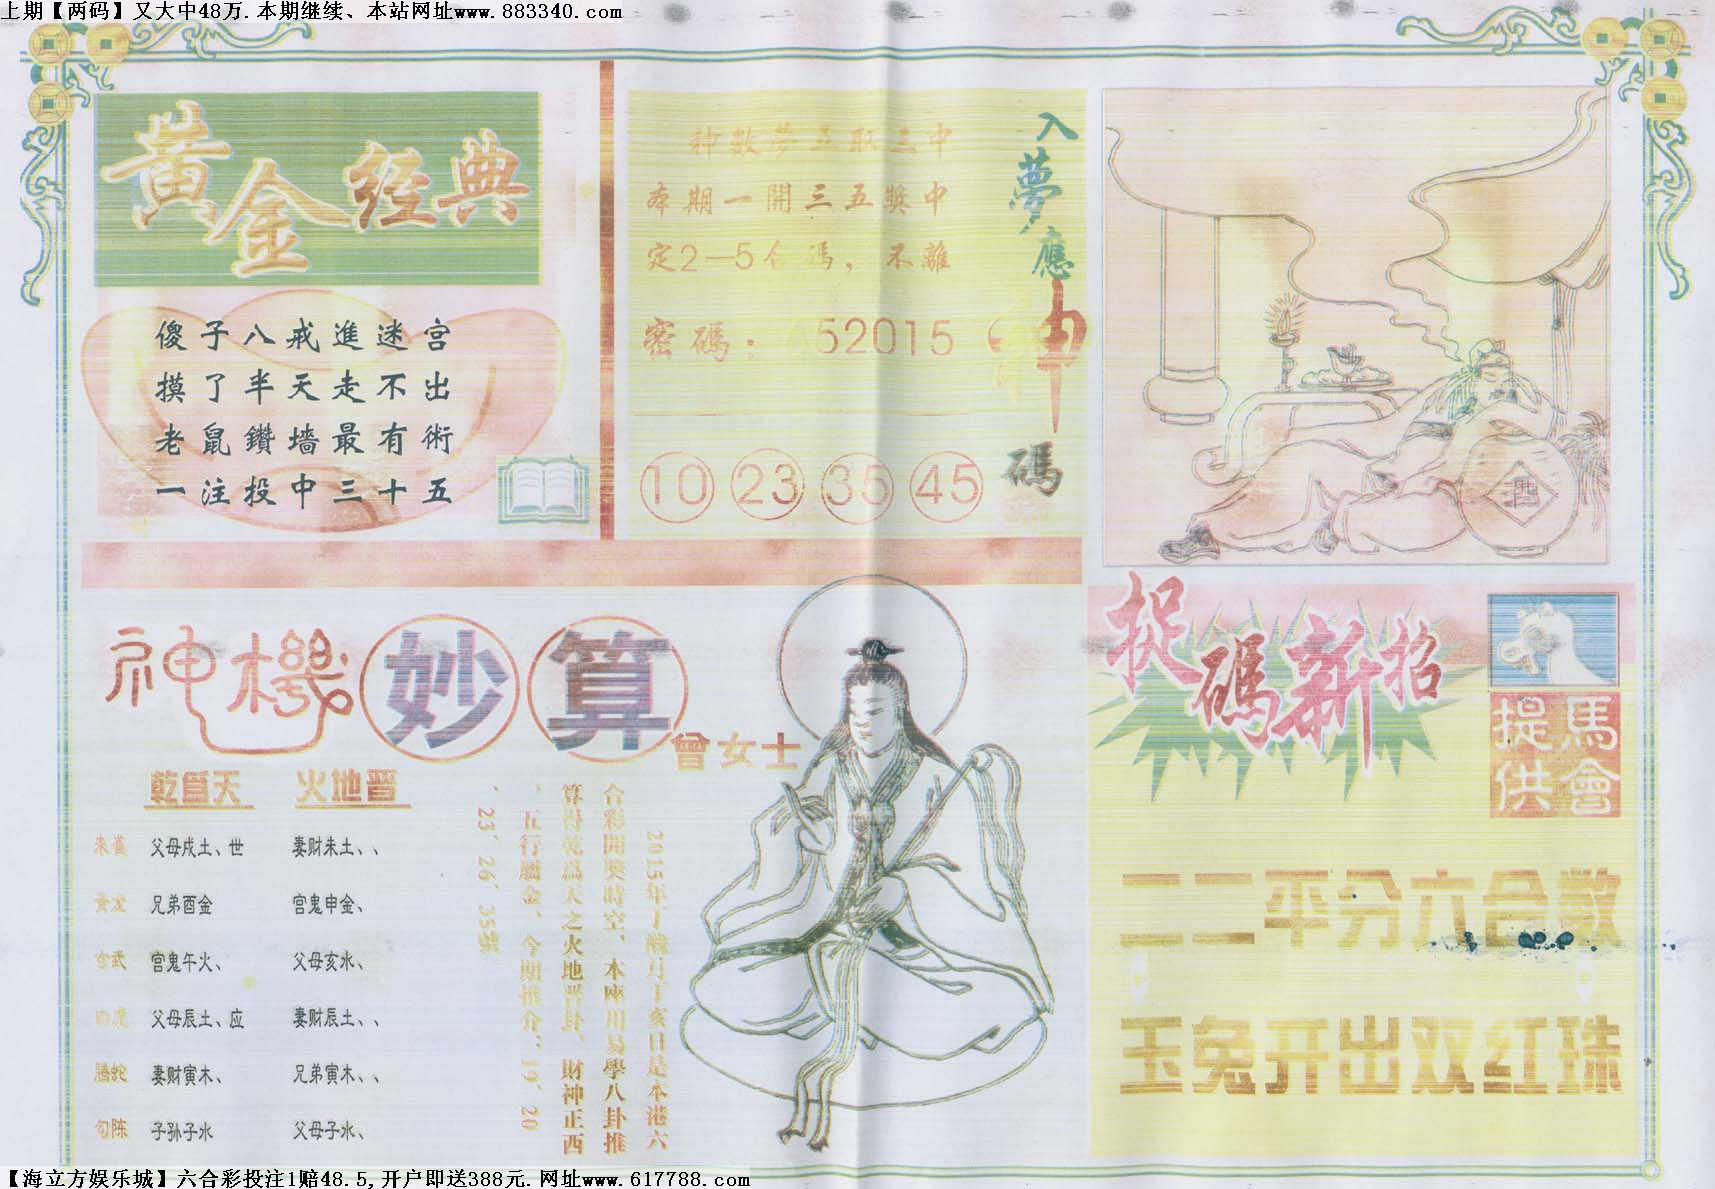 上期【两码】又大中48万.本期继续、本站网址www.883340.com
黄金经典
傻子八戒進迷宫
摸了半天走不出
老鼠鑽墙最有術
一注投中三十五
入夢應神碼
种數夢五取三中
本期一開三五獎中
定2—5合碼，不離
密碼：52015
10 23 35 45
酒
神機妙算
曾女士
乾爲天 火地晋
朱雀 父母戌土、世 妻财朱土、、
兄弟酉金 官鬼申金、
玄武 宫鬼午火、 父母亥水、
白虎 父母辰土、应 妻财辰土、、
腾蛇 妻财寅木、 兄弟寅木、、
勾陈 子孙子水 父母子水、
合彩開獎時空，本座川易學八卦推
算得乾爲天之火地晋卦，財神正西
，五行屬金、今期推介：19、20
、23、26、35
捉碼新招
馬會提供
二二平分六合数
玉兔开出双红珠
【海立方娱乐城】六合彩投注1赔48.5,开户即送388元.网址www.617788.com